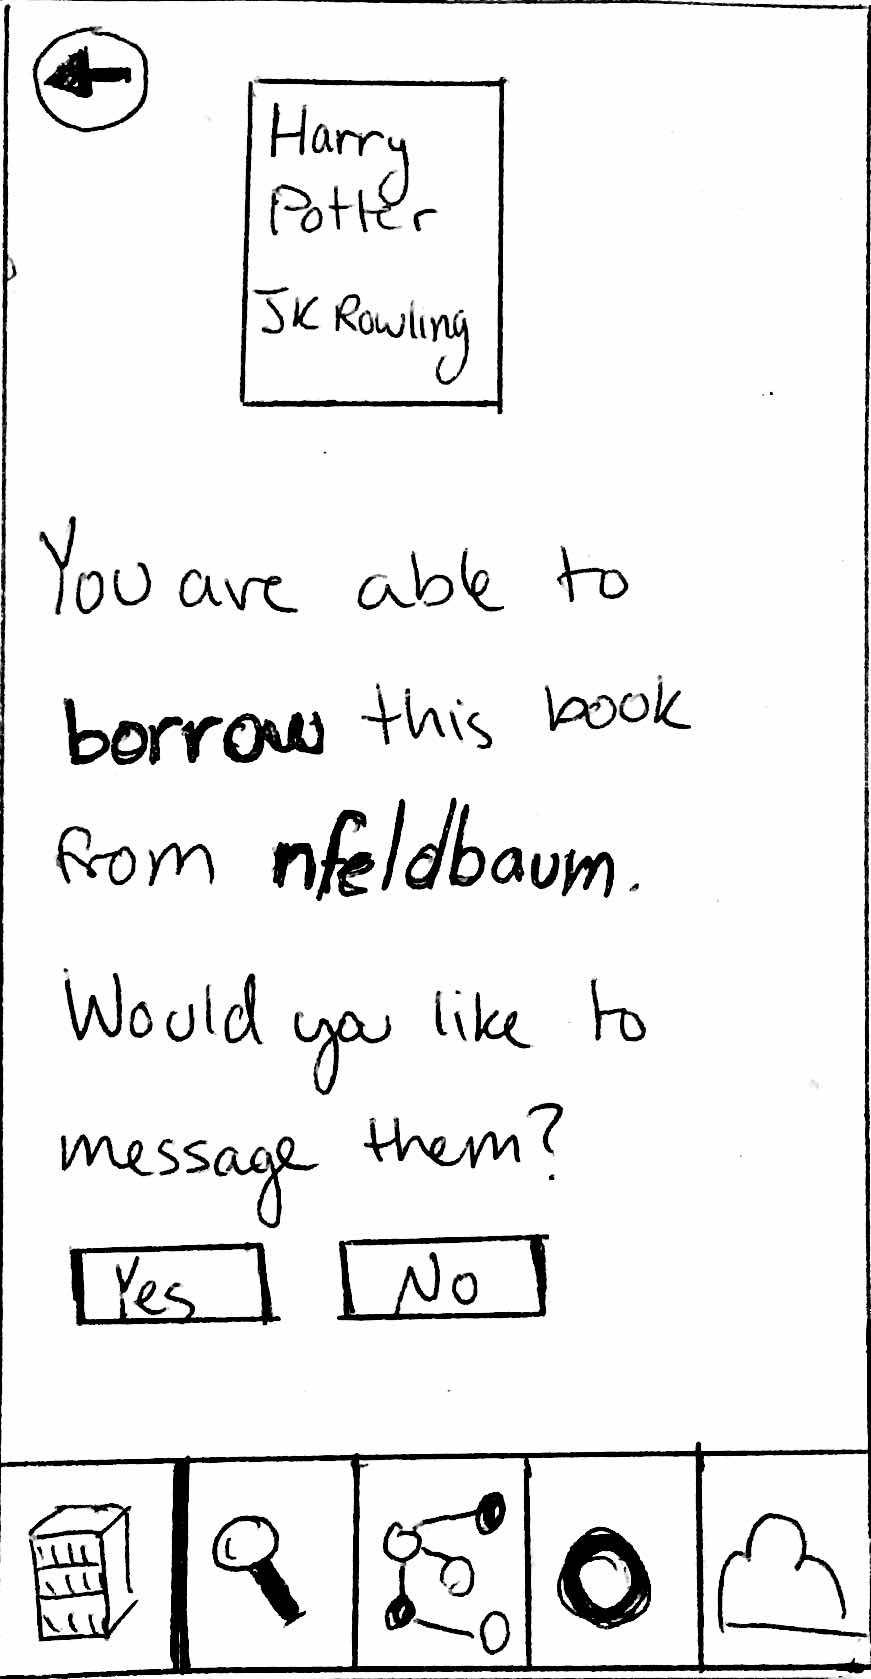 Harry
Potter
JK Rowling
You are able to
borrow this book
from nfeldbaum.
Would you like to
message them?
Yes No